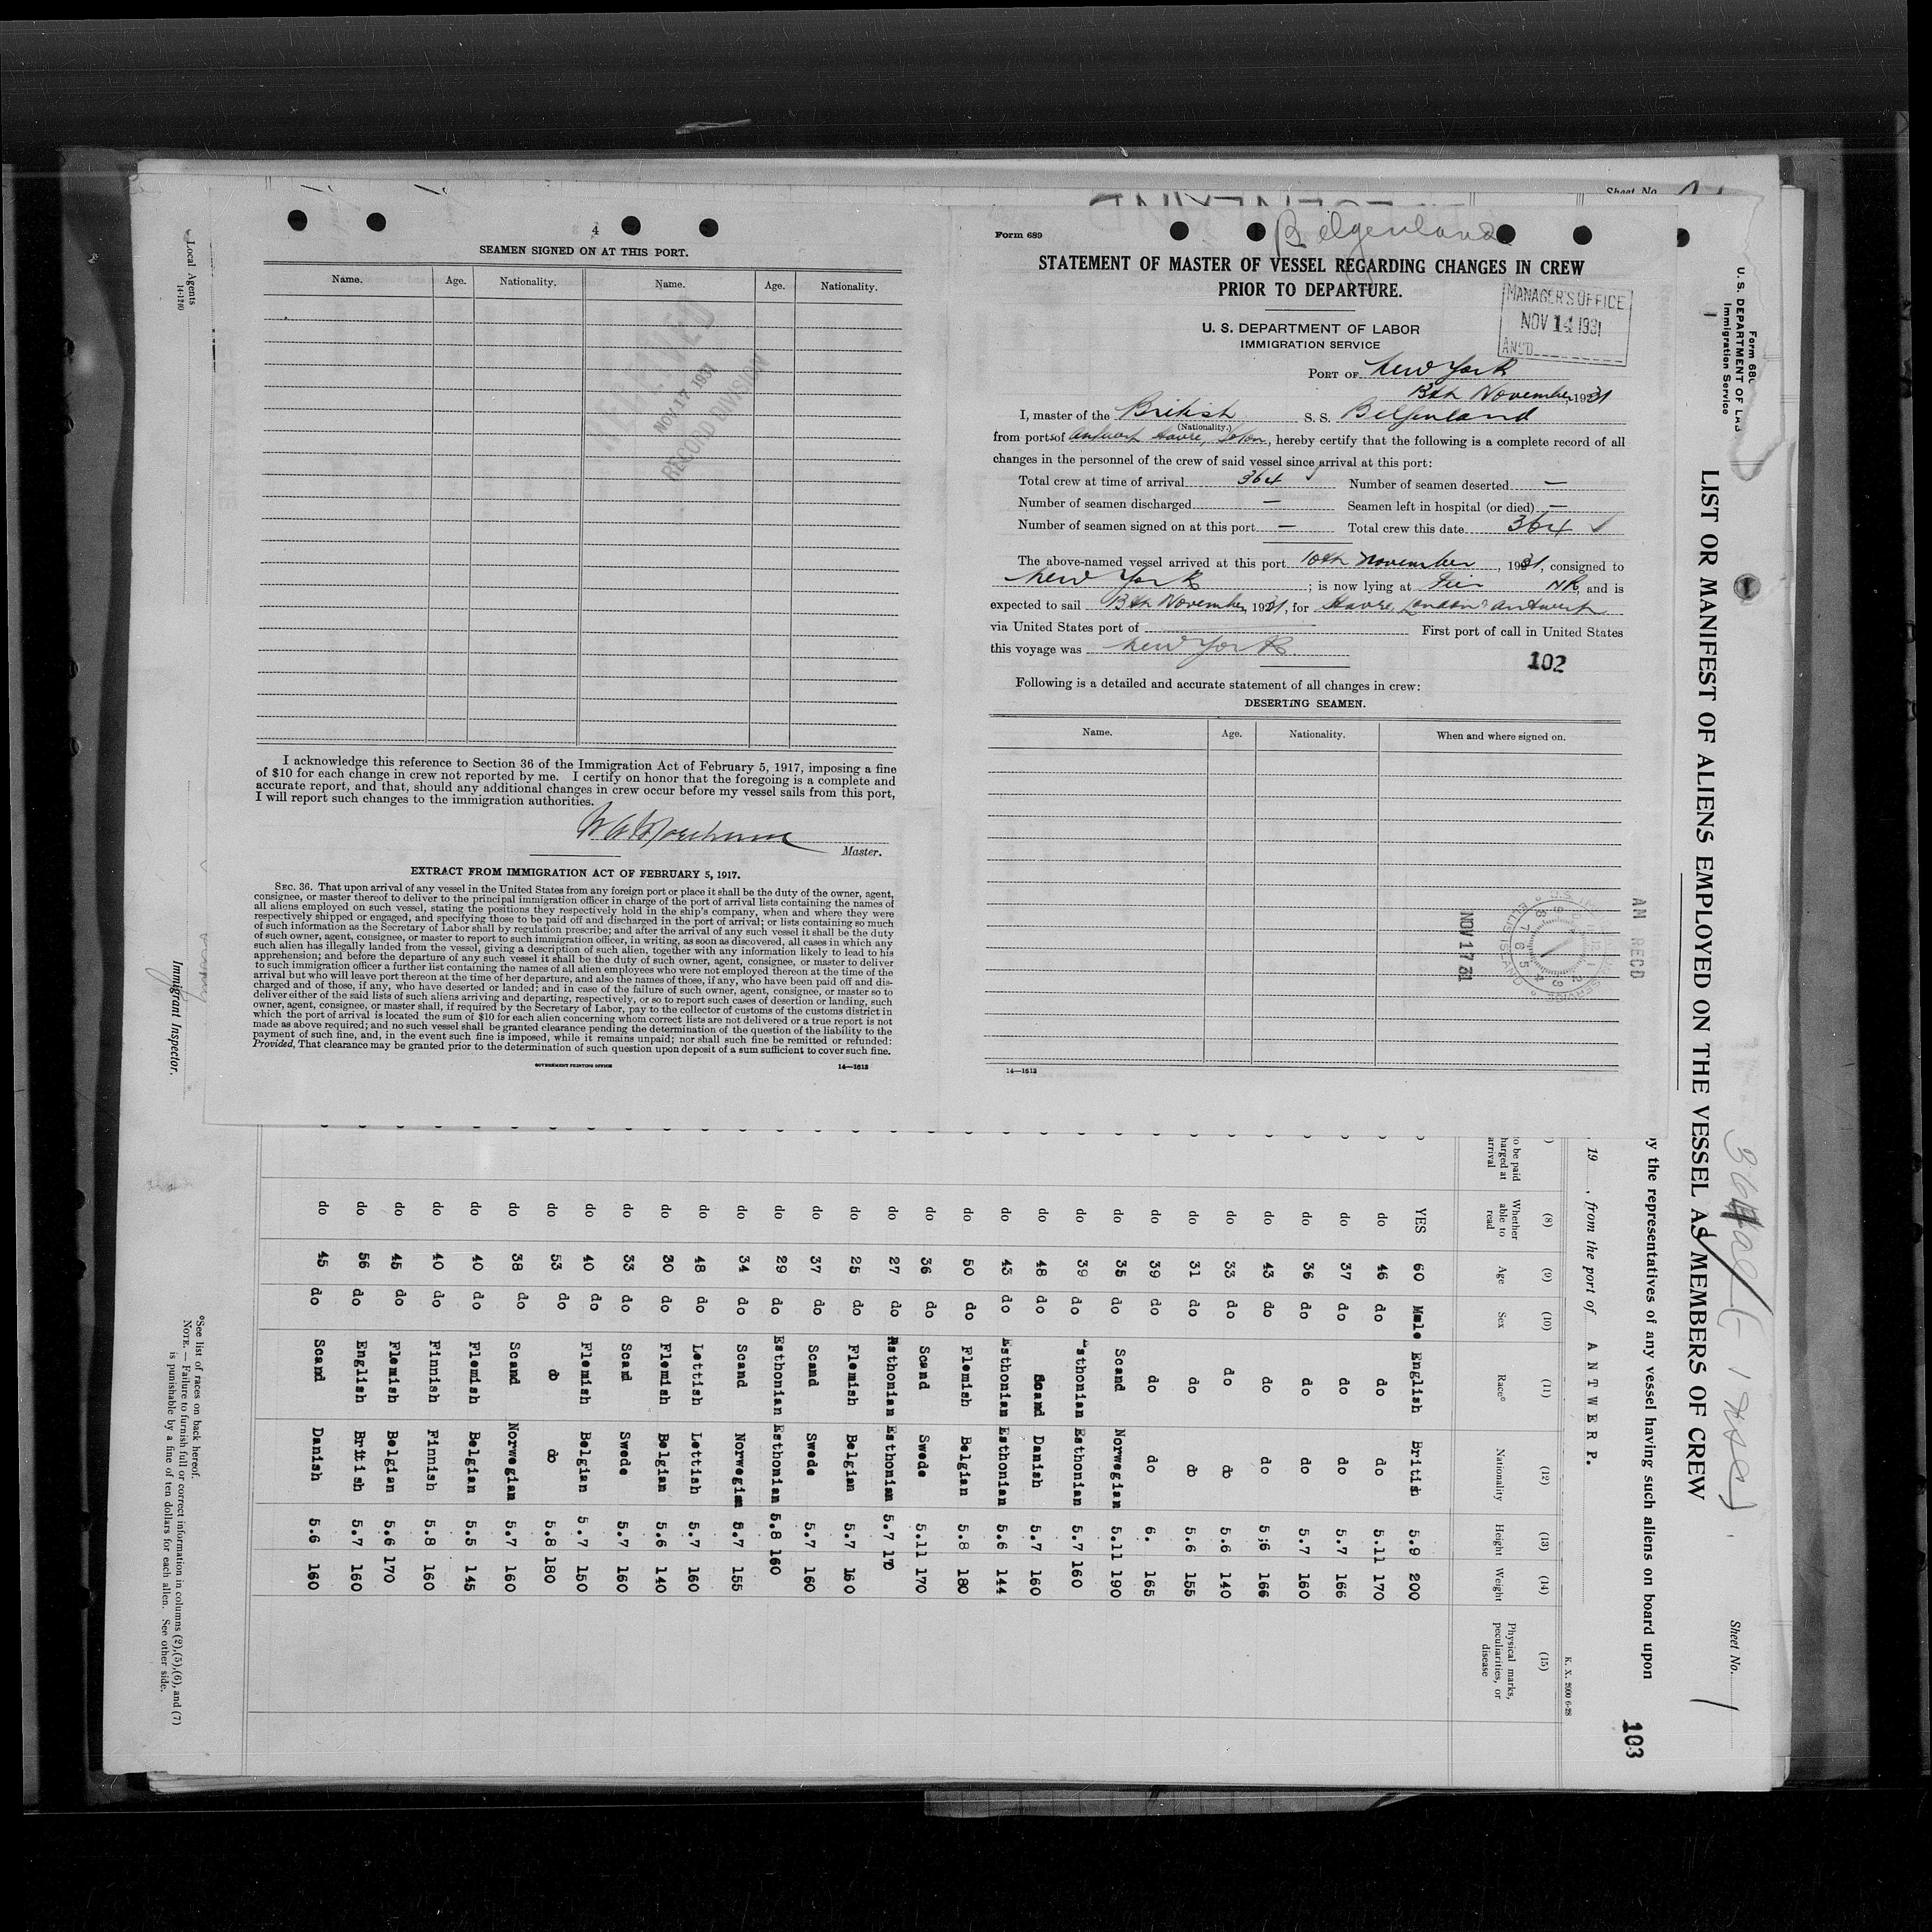 4
SEAMEN SIGNED ON AT THIS PORT.
Name. Age. Nationality. Name. Age. Nationality.
RECEIVED
NOV 17 1931
RECORD DIVISION
I acknowledge this reference to Section 36 of the Immigration Act of February 5, 1917, imposing a fine
of $10 for each change in crew not reported by me. I certify on honor that the foregoing is a complete and
accurate report, and that, should any additional changes in crew occur before my vessel sails from this port,
I will report such changes to the immigration authorities.
Master.
EXTRACT FROM IMMIGRATION ACT OF FEBRUARY 5, 1917.
SEC. 36. That upon arrival of any vessel in the United States from any foreign port or place it shall be the duty of the owner, agent,
consignee, or master thereof to deliver to the principal immigration officer in charge of the port of arrival lists containing the names of
all aliens employed on such vessel, stating the positions they respectively hold in the ship's company, when and where they were
respectively shipped or engaged, and specifying those to be paid off and discharged in the port of arrival; or lists containing so much
of such information as the Secretary of Labor shall by regulation prescribe; and after the arrival of any such vessel it shall be the duty
of such owner, agent, consignee, or master to report to such immigration officer, in writing, as soon as discovered, all cases in which any
such alien has illegally landed from the vessel, giving a description of such alien, together with any information likely to lead to his
apprehension; and before the departure of any such vessel it shall be the duty of such owner, agent, consignee, or master to deliver
to such immigration officer a further list containing the names of all alien employees who were not employed thereon at the time of the
arrival but who will leave port thereon at the time of her departure, and also the names of those, if any, who have been paid off and dis-
charged and of those, if any, who have deserted or landed; and in case of the failure of such owner, agent, consignee, or master so to
deliver either of the said lists of such aliens arriving and departing, respectively, or so to report such cases of desertion or landing, such
owner, agent, consignee, or master shall, if required by the Secretary of Labor, pay to the collector of customs of the customs district in
which the port of arrival is located the sum of $10 for each alien concerning whom correct lists are not delivered or a true report is not
made as above required; and no such vessel shall be granted clearance pending the determination of the question of the liability to the
payment of such fine, and, in the event such fine is imposed, while it remains unpaid; nor shall such fine be remitted or refunded:
Provided, That clearance may be granted prior to the determination of such question upon deposit of a sum sufficient to cover such fine.
GOVERNMENT PRINTING OFFICE 14—1613
Form 689
Belgenland
STATEMENT OF MASTER OF VESSEL REGARDING CHANGES IN CREW
PRIOR TO DEPARTURE.
MANAGER'S OFFICE
NOV 14 1931
ANS'D
U. S. DEPARTMENT OF LABOR
IMMIGRATION SERVICE
PORT OF New York
13th November, 1931
I, master of the British S. S. Belgenland
(Nationality.)
from ports of Antwerp Havre, Soton, hereby certify that the following is a complete record of all
changes in the personnel of the crew of said vessel since arrival at this port:
Total crew at time of arrival 364 Number of seamen deserted —
Number of seamen discharged — Seamen left in hospital (or died) —
Number of seamen signed on at this port — Total crew this date 364
The above-named vessel arrived at this port 10th November, 1931, consigned to
New York; is now lying at Pier NR, and is
expected to sail 13th November, 1931, for Havre, London Antwerp
via United States port of First port of call in United States
this voyage was New York
102
Following is a detailed and accurate statement of all changes in crew:
DESERTING SEAMEN.
Name. Age. Nationality. When and where signed on.
AM RECD
NOV 17 31
ELLIS ISLAND
14—1613
Sheet No.
Form 680
U. S. DEPARTMENT OF LAB
Immigration Service
LIST OR MANIFEST OF ALIENS EMPLOYED ON THE VESSEL AS MEMBERS OF CREW
Sheet No. 1
103
by the representatives of any vessel having such aliens on board upon
, 19 , from the port of ANTWERP.
K. X. 2000 6-28
(8) (9) (10) (11) (12) (13) (14) (15)
to be paid
harged at
arrival
Whether able to read Age Sex Race° Nationality Height Weight Physical marks, peculiarities, or disease
YES 60 Male English British 5.9 200
do 46 do do do 5.11 170
do 37 do do do 5.7 166
do 36 do do do 5.7 160
do 43 do do do 5;6 166
do 33 do do do 5.6 140
do 31 do do do 5.6 155
do 39 do do do 6. 165
do 35 do Scand Norwegian 5.11 190
do 39 do Esthonian Esthonian 5.7 160
do 48 do Scand Danish 5.7 160
do 43 do Esthonian Esthonian 5.6 144
do 50 do Flemish Belgian 5.8 180
do 36 do Scand Swede 5.11 170
do 27 do Esthonian Esthonian 5.7 170
do 25 do Flemish Belgian 5.7 160
do 37 do Scand Swede 5.7 160
do 29 do Esthonian Esthonian 5.8 160
do 34 do Scand Norwegian 5.7 155
do 48 do Lettish Lettish 5.7 160
do 30 do Flemish Belgian 5.6 140
do 33 do Scand Swede 5.7 160
do 40 do Flemish Belgian 5.7 150
do 53 do do do 5.8 180
do 38 do Scand Norwegian 5.7 160
do 40 do Flemish Belgian 5.5 145
do 40 do Finnish Finnish 5.8 160
do 45 do Flemish Belgian 5.6 170
do 56 do English British 5.7 160
do 45 do Scand Danish 5.6 160
Local Agents
14-1240
Immigrant Inspector.
°See list of races on back hereof.
NOTE.—Failure to furnish full or correct information in columns (2),(5),(6), and (7)
is punishable by a fine of ten dollars for each alien. See other side.